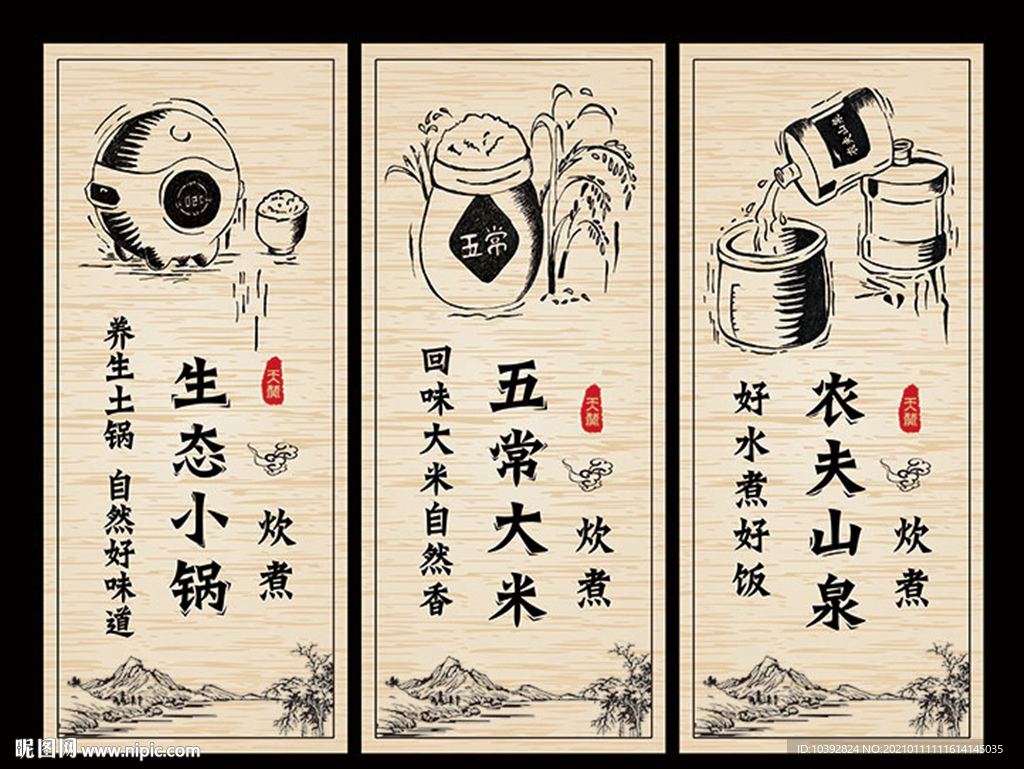 养生土锅 自然好味道
生态小锅
天龍
炊煮
五常
回味大米自然香
五常大米
天龍
炊煮
农夫山泉
好水煮好饭
农夫山泉
天龍
炊煮
昵图网 www.nipic.com
ID:10392824 NO:20210111111614145035